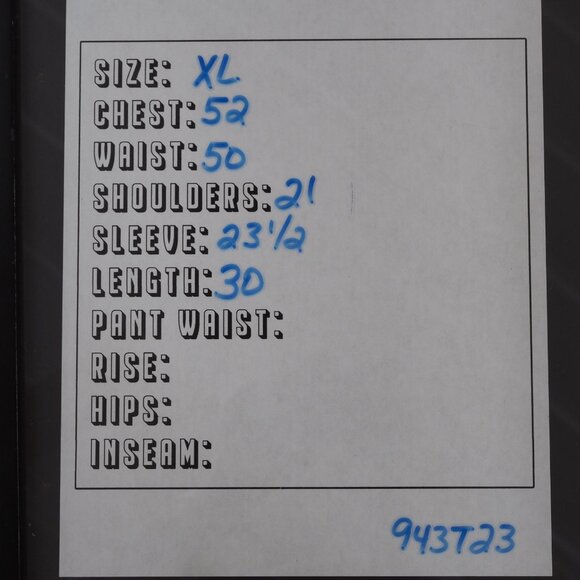 SIZE: XL
CHEST: 52
WAIST: 50
SHOULDERS: 21
SLEEVE: 23 1/2
LENGTH: 30
PANT WAIST:
RISE:
HIPS:
INSEAM:
943T23